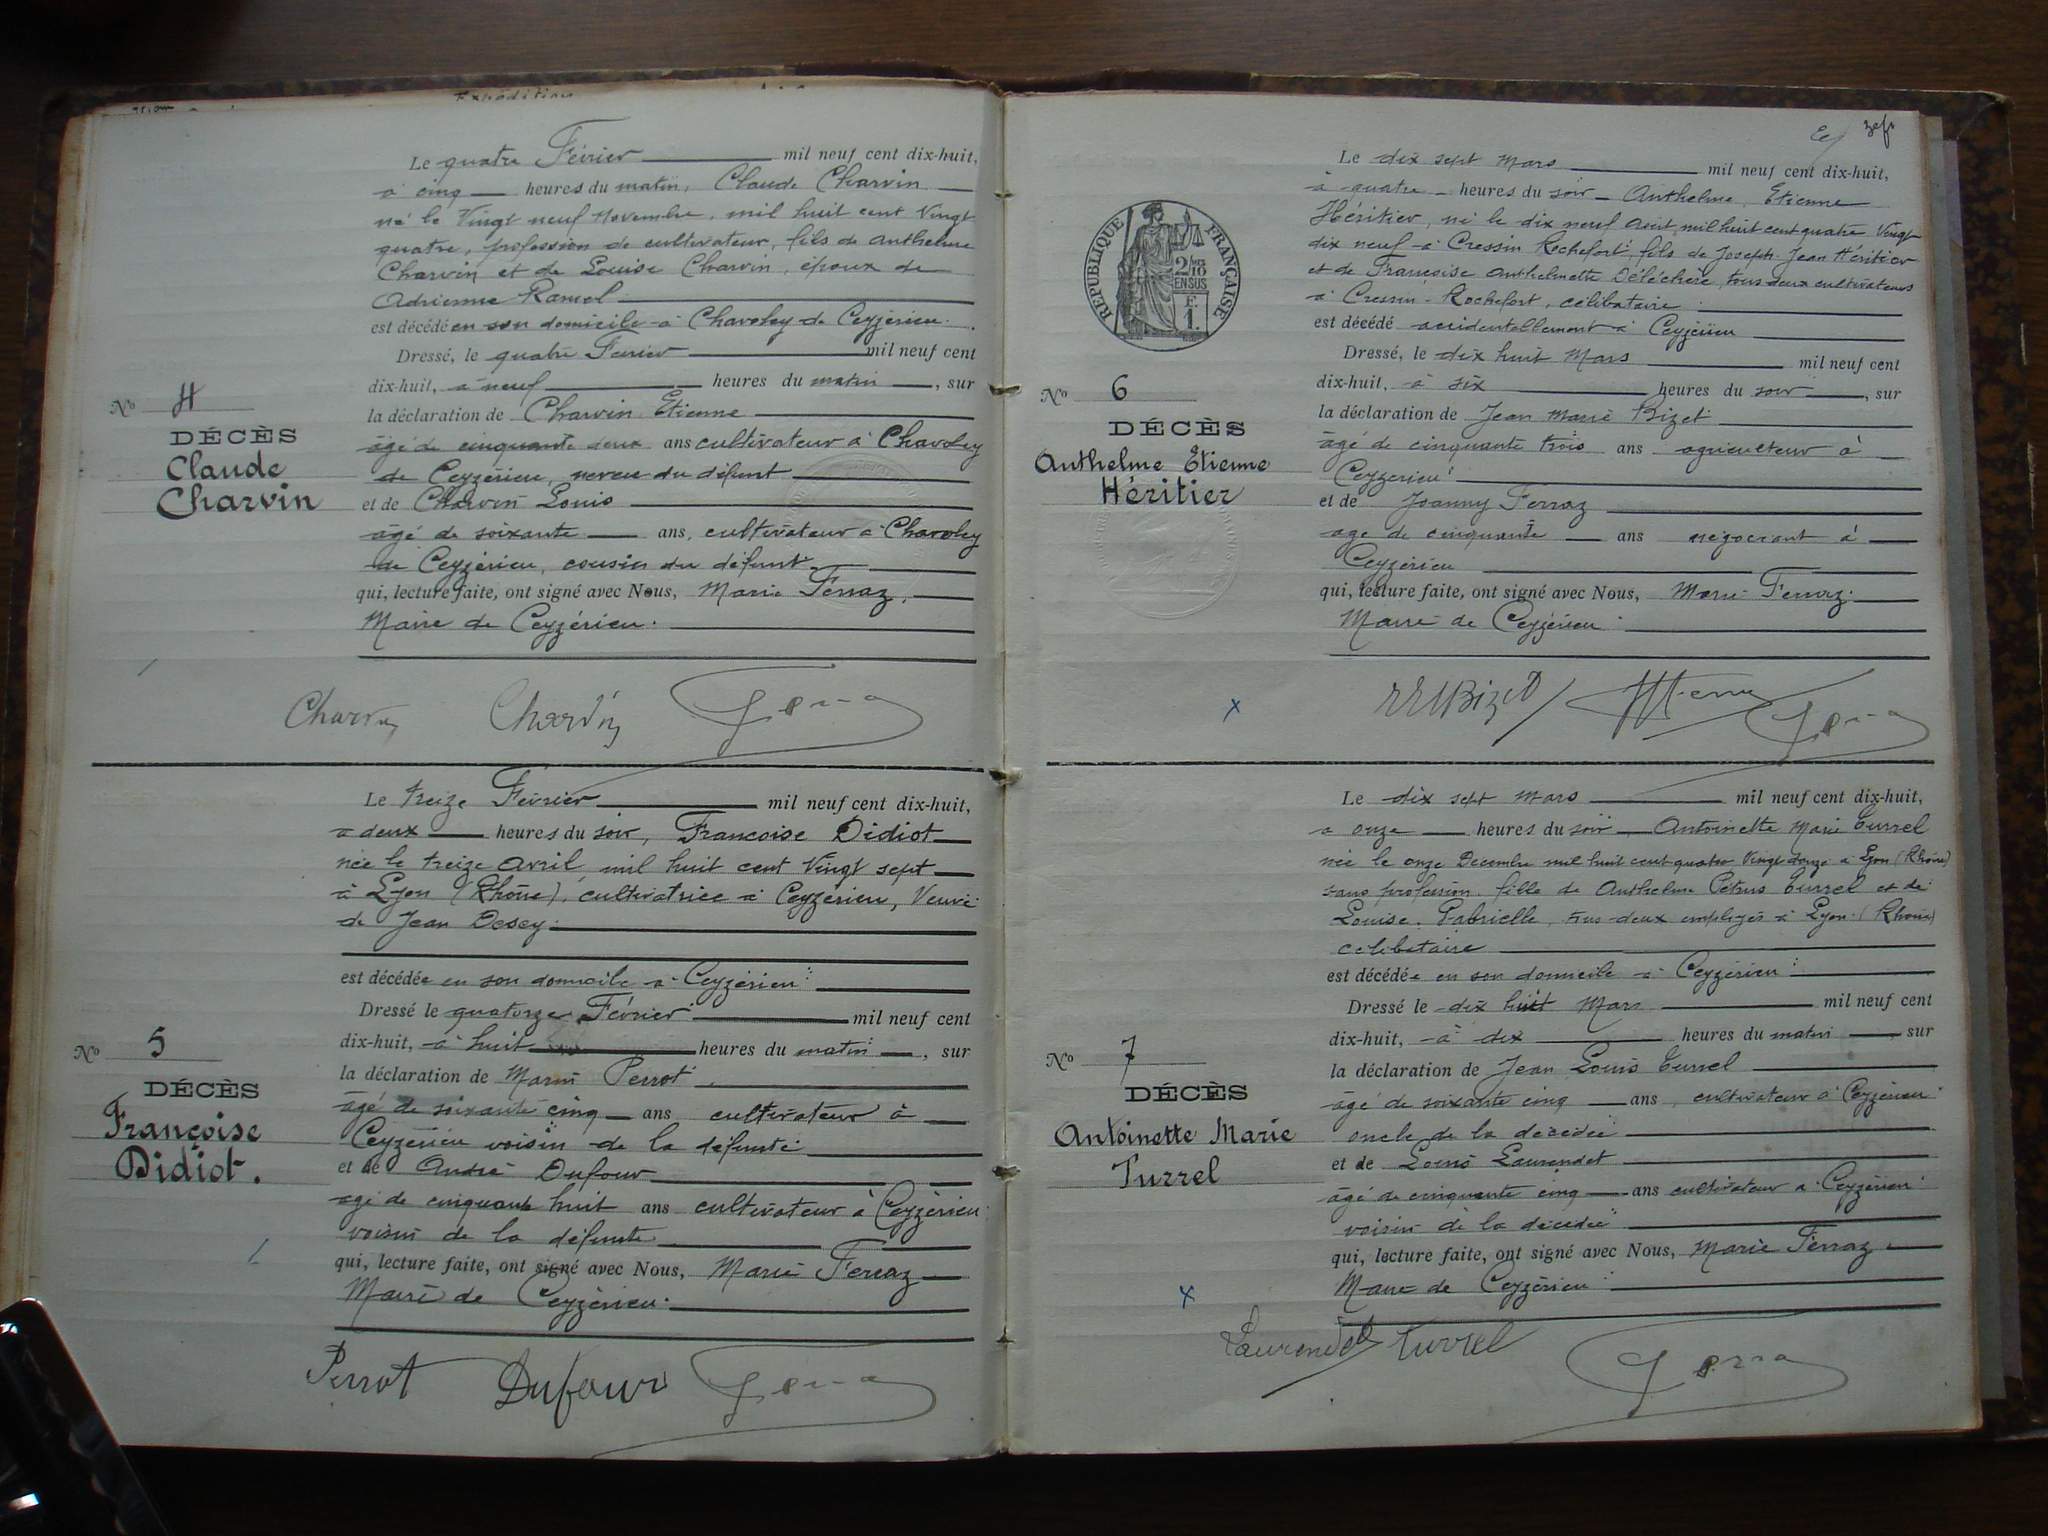 Expédition
Le quatre Février mil neuf cent dix-huit,
à cinq heures du matin, Claude Charvin
né le Vingt neuf Novembre, mil huit cent Vingt
quatre, profession de cultivateur, fils de Anthelme
Charvin et de Louise Charvin, époux de
Adrienne Ramel
est décédé en son domicile à Chavoley de Ceyzérieu.
Dressé, le quatre Février mil neuf cent
dix-huit, à neuf heures du matin, sur
la déclaration de Charvin Etienne
âgé de cinquante deux ans cultivateur à Chavoley
de Ceyzérieu, neveu du défunt
et de Charvin Louis
âgé de soixante ans, cultivateur à Chavoley
de Ceyzérieu, cousin du défunt
qui, lecture faite, ont signé avec Nous, Marie Ferraz,
Maire de Ceyzérieu.
No 4
DÉCÈS
Claude
Charvin
Charvin Charvin Ferraz
Le treize Février mil neuf cent dix-huit,
à deux heures du soir, Francoise Didiot
née le treize Avril, mil huit cent Vingt sept
à Lyon (Rhône), cultivatrice à Ceyzérieu, Veuve
de Jean Desey.
est décédée en son domicile à Ceyzérieu
Dressé le quatorze Février mil neuf cent
dix-huit, à huit heures du matin, sur
la déclaration de Marin Perrot
âgé de soixante cinq ans cultivateur à
Ceyzérieu voisin de la défunte
et de André Dufour
agé de cinquante huit ans cultivateur à Ceyzérieu
voisin de la défunte
qui, lecture faite, ont signé avec Nous, Marie Ferraz
Maire de Ceyzérieu.
No 5
DÉCÈS
Françoise
Didiot.
Perrot Dufour Ferraz
Le dix sept Mars mil neuf cent dix-huit,
à quatre heures du soir Anthelme, Etienne
Héritier, né le dix neuf Août mil huit cent quatre Vingt
dix neuf à Cressin Rochefort, fils de Joseph Jean Héritier
et de Francoise Anthelmette Déléchère, tous deux cultivateurs
à Cressin-Rochefort, célibataire
est décédé accidentellement à Ceyzérieu
Dressé, le dix huit Mars mil neuf cent
dix-huit, à six heures du soir, sur
la déclaration de Jean Marie Bizet
âgé de cinquante trois ans agriculteur à
Ceyzérieu
et de Joanny Ferraz
age de cinquante ans négociant à
Ceyzérieu
qui, lecture faite, ont signé avec Nous, Marie Ferraz.
Maire de Ceyzérieu
RÉPUBLIQUE FRANÇAISE
2/10
EN SUS
F.
1.
No 6
DÉCÈS
Anthelme Etienne
Héritier
Bizet Ferraz
Le dix sept Mars mil neuf cent dix-huit,
à onze heures du soir Antoinette Marie Turrel
née le onze Décembre mil huit cent quatre Vingt onze à Lyon (Rhône)
sans profession fille de Anthelme Pétrus Turrel et de
Louise Gabrielle, tous deux employés à Lyon (Rhône)
célibataire
est décédée en son domicile à Ceyzérieu
Dressé le dix huit Mars mil neuf cent
dix-huit, à dix heures du matin sur
la déclaration de Jean Louis Turrel
âgé de soixante cinq ans, cultivateur à Ceyzérieu
oncle de la décédée
et de Louis Laurendet
âgé de cinquante cinq ans cultivateur à Ceyzérieu
voisin de la décédée
qui, lecture faite, ont signé avec Nous, Marie Ferraz
Maire de Ceyzérieu
No 7
DÉCÈS
Antoinette Marie
Turrel
Laurendet Turrel Ferraz